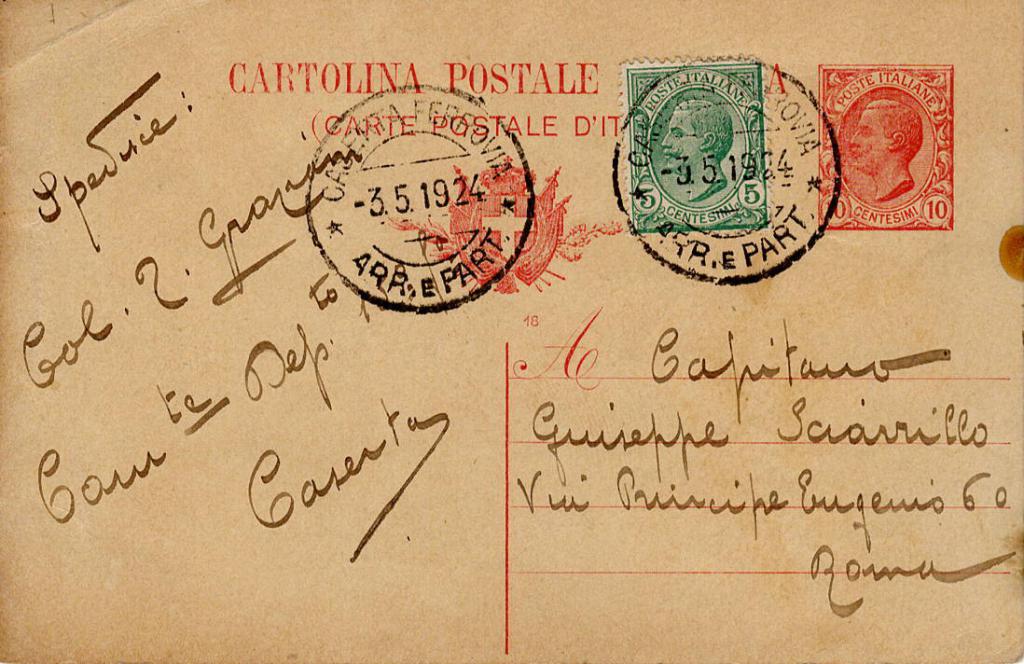 CARTOLINA POSTALE
(CARTE POSTALE D'IT
POSTE ITALIANE
5 CENTESIMI 5
POSTE ITALIANE
CENTESIMI 10
CASERTA FERROVIA
-3.5.1924
ARR. E PART.
CASERTA FERROVIA
-3.5.1924
ARR. E PART.
18
Spedisce:
Col. T. Graziani
Com te Dep. to
Caserta
A Capitano
Guiseppe Sciarrillo
Via Principe Eugenio 60
Roma